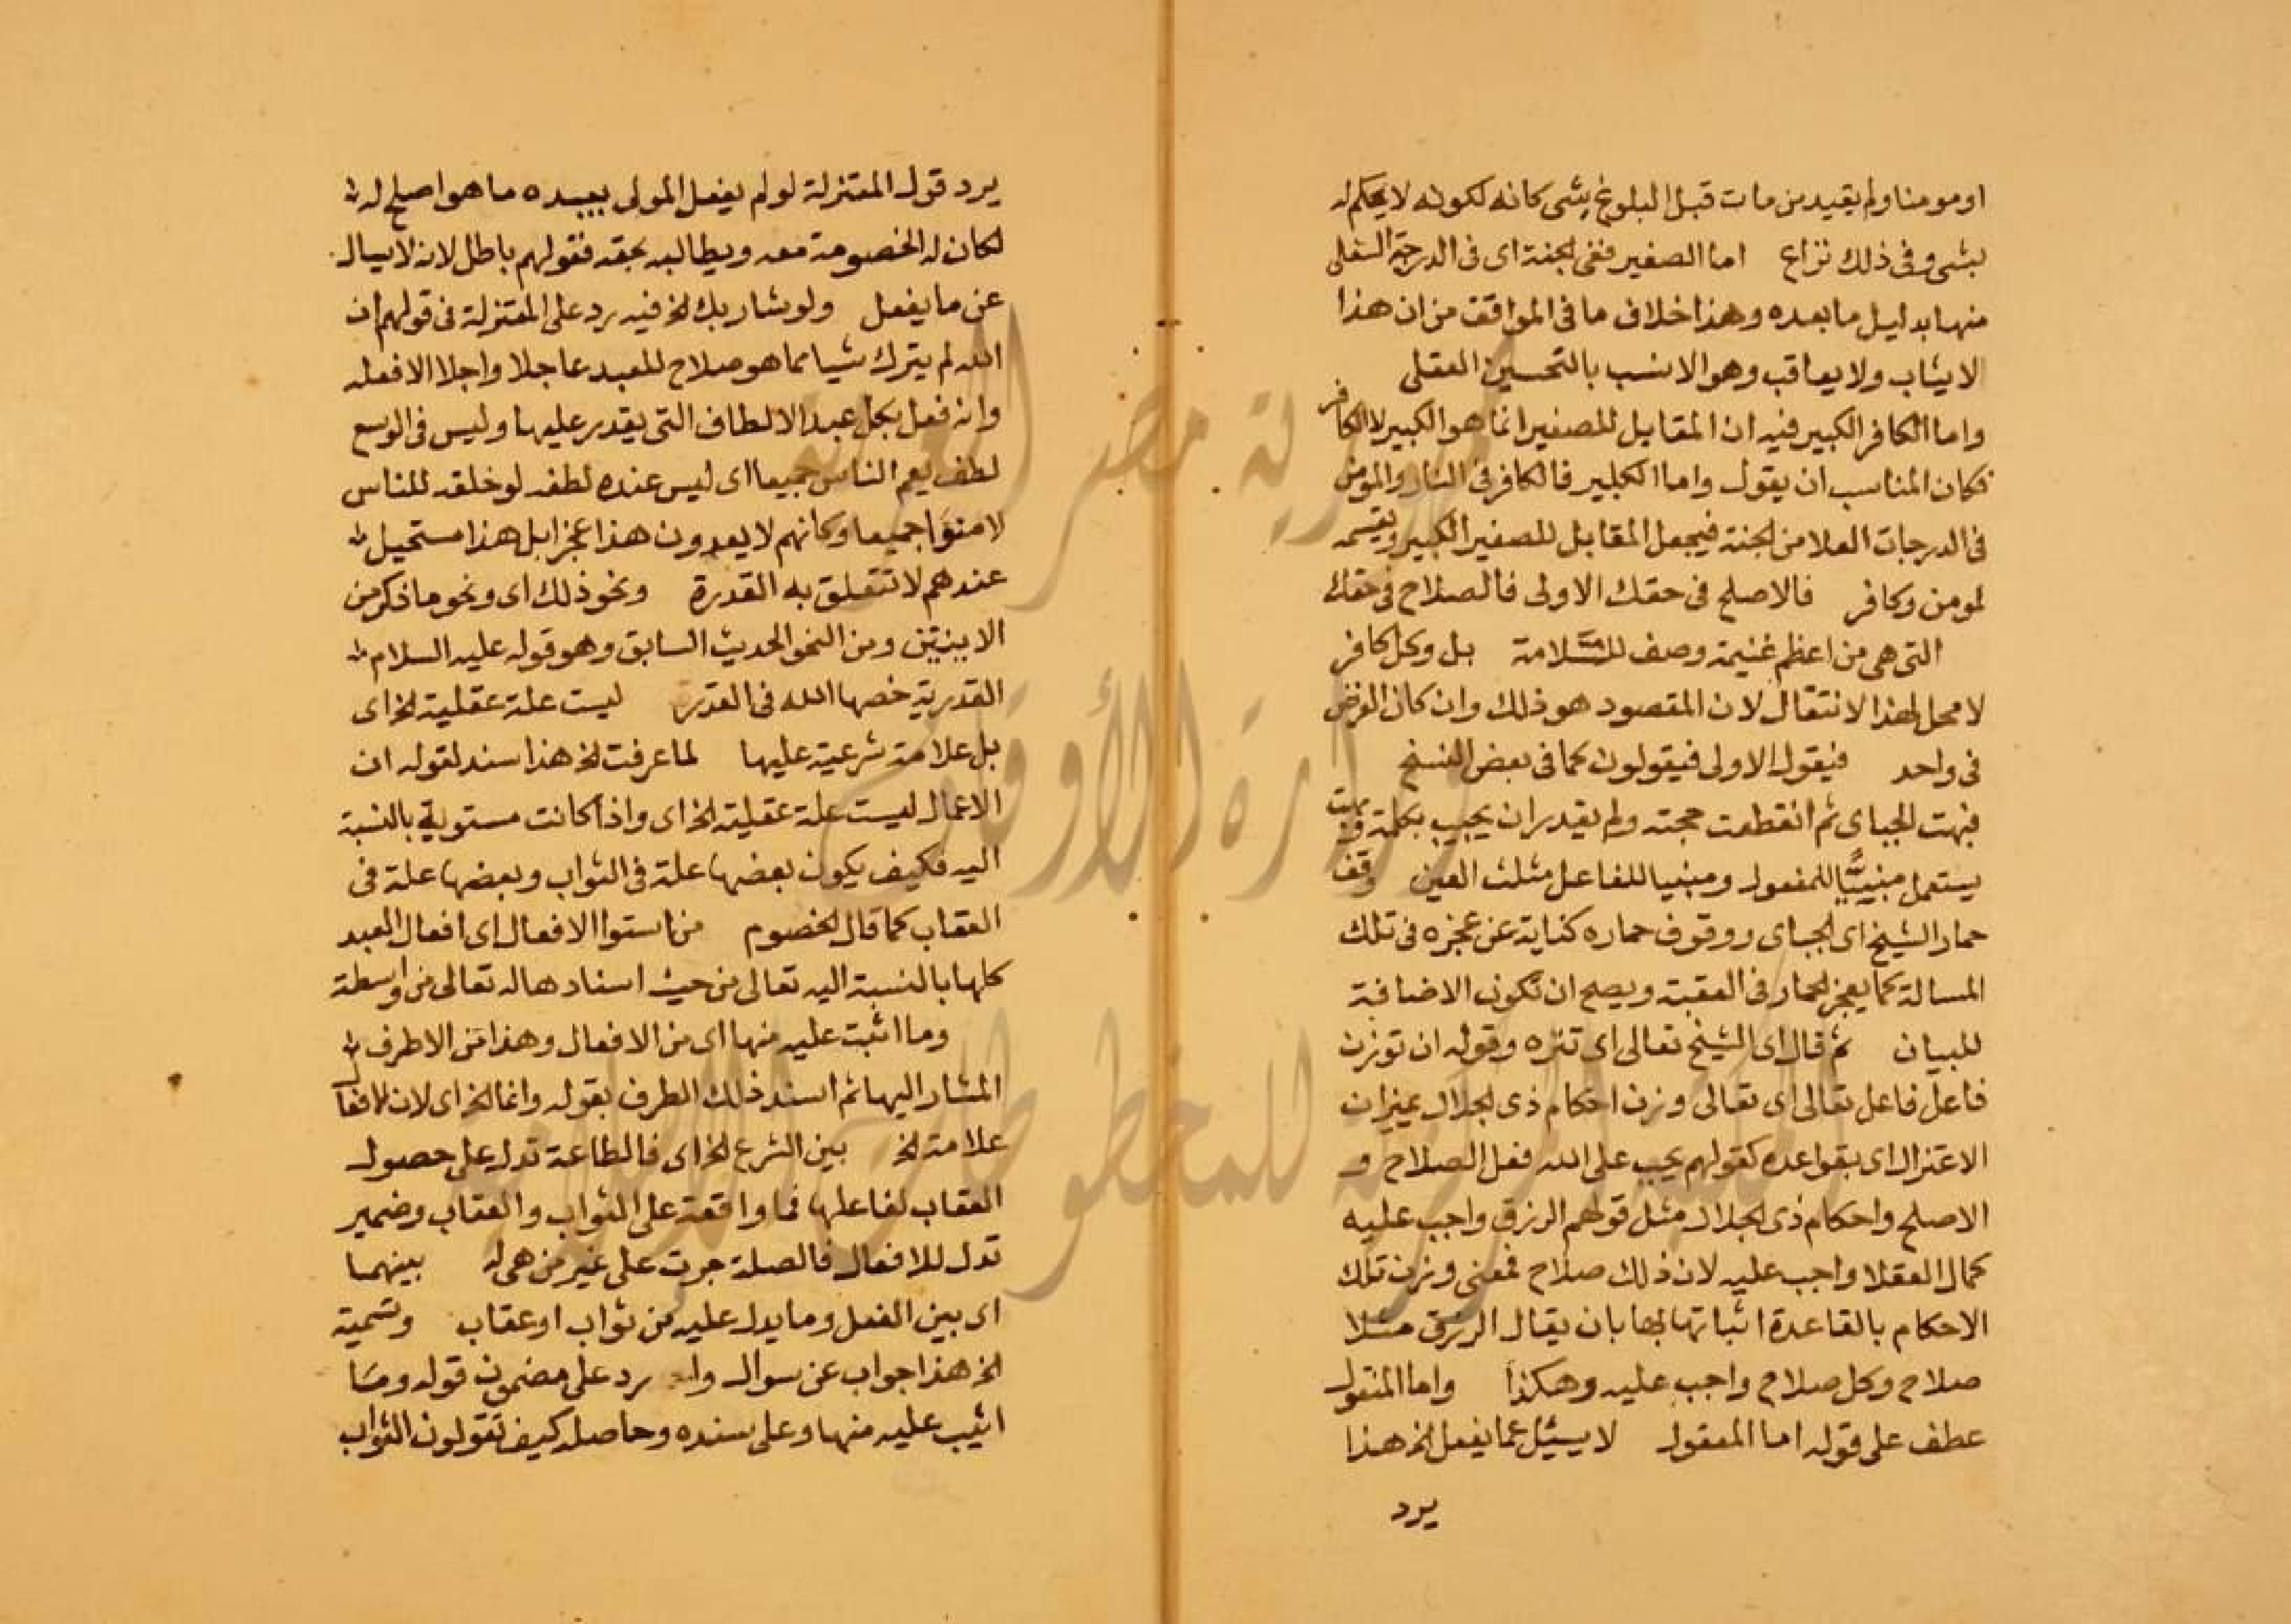 او مومنا ولم يقيد من مات قبل البلوغ بشى كانه لكونه لا يحكم له
بشى وفى ذلك نزاع اما الصغير ففى الجنة اى فى الدرجة السفلى
منها بدليل ما بعده وهذا خلاف ما فى المواقف من ان هذا
لا يثاب ولا يعاقب وهو الانسب بالتحسين العقلى
واما الكافر الكبير فيه ان المقابل للصغير انما هو الكبير لا الكافر
فكان المناسب ان يقول واما الكبير فالكافر فى النار والمومن
فى الدرجات العلا من الجنة فيجعل المقابل للصغير الكبير ويقسمه
لمومن وكافر فالاصلح فى حقك الاولى فالصلاح فى حقك
التى هى من اعظم غنيمة وصف للسلامة بل وكل كافر
لا محل لهذا الانتقال لان المقصود هو ذلك وان كان الفرض
فى واحد فيقول الاولى فيقولون كما فى بعض النسخ
فبهت الجباى ثم انقطعت حجته ولم يقدر ان يجيب بكلمة وبهت
يستعمل مبنيًّا للمفعول ومبنيا للفاعل مثلث العين وقف
حمار الشيخ اى الجباى ووقوف حماره كناية عن عجزه فى تلك
المسالة كما يعجز الحمار فى العقبة ويصح ان تكون الاضافة
للبيان ثم قال اى الشيخ تعالى اى تنزه وقوله ان توزن
فاعل فاعل تعالى اى تعالى وزن احكام ذى الجلال بميزان
الاعتزال اى بقواعده كقولهم يجب على الله فعل الصلاح و
الاصلح واحكام ذى الجلال مثل قولهم الرزق واجب عليه
كمال العقلا واجب عليه لان ذلك صلاح فمعنى وزن تلك
الاحكام بالقاعدة اثباتها بها بان يقال الرزق مثلا
صلاح وكل صلاح واجب عليه وهكذا واما المنقول
عطف على قوله اما المعقول لا يسئل عما يفعل الخ هذا
يرد
يرد قول المعتزلة لو لم يفعل المولى بعبده ما هو اصلح له
لكان له الخصومة معه ويطالبه بحقه فقولهم باطل لانه لا يسال
عن ما يفعل ولو شا ربك الخ فيه رد على المعتزلة فى قولهم ان
الله لم يترك شيا مما هو صلاح للعبد عاجلا واجلا الا فعله
وانه فعل بكل عبد الالطاف التى يقدر عليها وليس فى الوسع
لطف يعم الناس جميعا اى ليس عنده لطف لو خلقه للناس
لامنوا جميعا وكانهم لا يعدون هذا عجزا بل هذا مستحيل
عندهم لا تتعلق به القدرة ونحو ذلك اى ونحو ما ذكر من
الايتين ومن النحو الحديث السابق وهو قوله عليه السلام
القدرية خصها الله فى القدر ليست علة عقلية الخ اى
بل علامة شرعية عليها لما عرفت الخ هذا سند لقوله ان
الاعمال ليست علة عقلية الخ اى واذا كانت مستوية بالنسبة
اليه فكيف يكون بعضها علة فى الثواب وبعضها علة فى
العقاب كما قال الخصوم من استوا الافعال اى افعال العبد
كلها بالنسبة اليه تعالى من حيث اسنادها له تعالى من واسطة
وما اثبت عليه منها اى من الافعال وهذا من الاطرف
المشار اليها ثم اسند ذلك الطرف بقوله وانما الخ اى لان الافعال
علامة الخ بين الشرع الخ اى فالطاعة تدل على حصول
العقاب لفاعلها فما واقعة على الثواب والعقاب وضمير
تدل للافعال فالصلة جرت على غير من هى له بينهما
اى بين الفعل وما يدل عليه من ثواب او عقاب وتسمية
الخ هذا جواب عن سوال وارد على مضمون قوله وما
اثيب عليه منها وعلى سنده وحاصله كيف تقولون الثواب